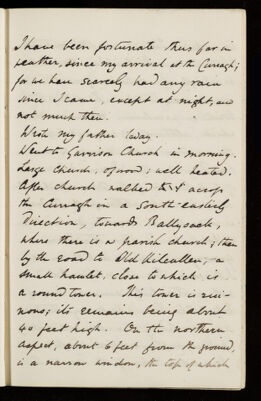 I have been fortunate thus far in
weather, since my arrival at the Curragh;
for we have scarcely had any rain
since I came, except at night, and
not much then.
Wrote my father today.
Went to Garrison Church in morning.
Large church, of wood; well heated.
After church walked across
the Curragh in a South-easterly
direction, towards Ballysax,
where there is a parish church; then
by the road to Old Kilcullen, a
small hamlet, close to which is
a round tower. This tower is rui-
nous; its remains being about
40 feet high. On the northern
aspect, about 6 feet from the ground,
is a narrow window, the top of which